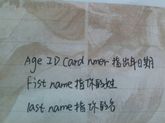 Age ID Card nmer 指出年日期
Fist name 指你的姓
last name 指你的名